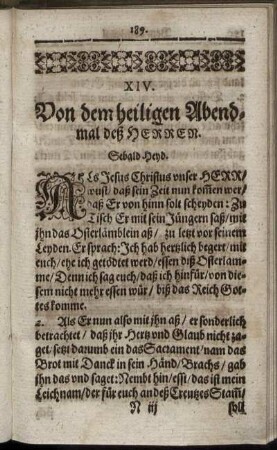 189.
XIV.
Von dem heiligen Abend-
mal deß HERREN.
Sebald Heyd.
ALs Jesus Christus vnser HERR/
wust/ daß sein Zeit nun kom̃en wer/
daß Er von hinn solt scheyden: Zu
Tisch Er mit sein Jüngern saß/ mit
jhn das Osterlämblein aß/ zu letzt vor seinem
Leyden. Er sprach: Jch hab hertzlich begert/ mit
euch/ ehe ich getödtet werd/ essen diß Osterlam-
me/ Denn ich sag euch/ daß ich hinfür/ von die-
sem nicht mehr essen wür/ biß das Reich Got-
tes komme.
2. Als Er nun also mit jhn aß/ er sonderlich
betrachtet/ daß jhr Hertz vnd Glaub nicht za-
get/ setzt darumb ein das Sacrament/ nam das
Brot mit Danck in sein Händ/ Brachs/ gab
jhn das vnd saget: Nembt hin/ esst/ das ist mein
Leichnam/ der für euch an deß Creutzes Stam̃/
N iij
soll